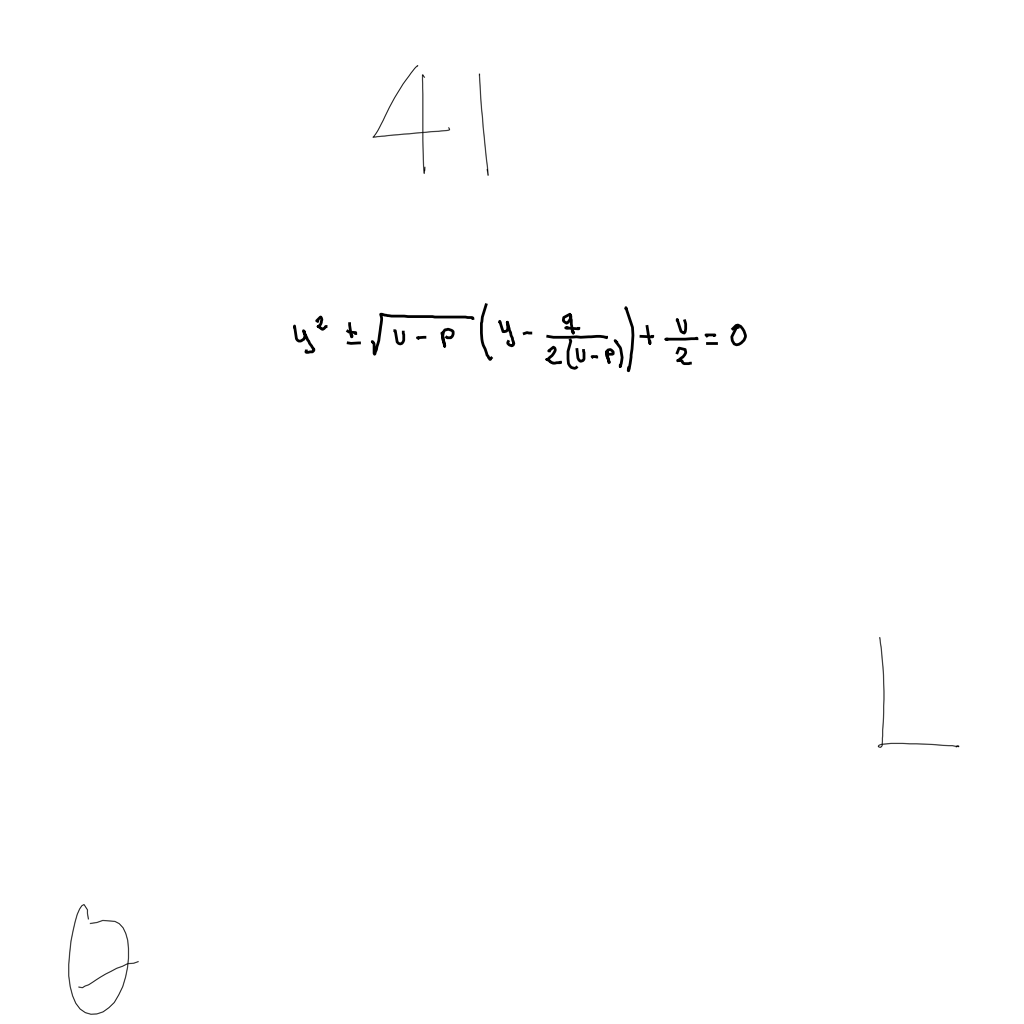 41
y² ± √(u - p) (y - q/(2(u - p))) + u/2 = 0
L